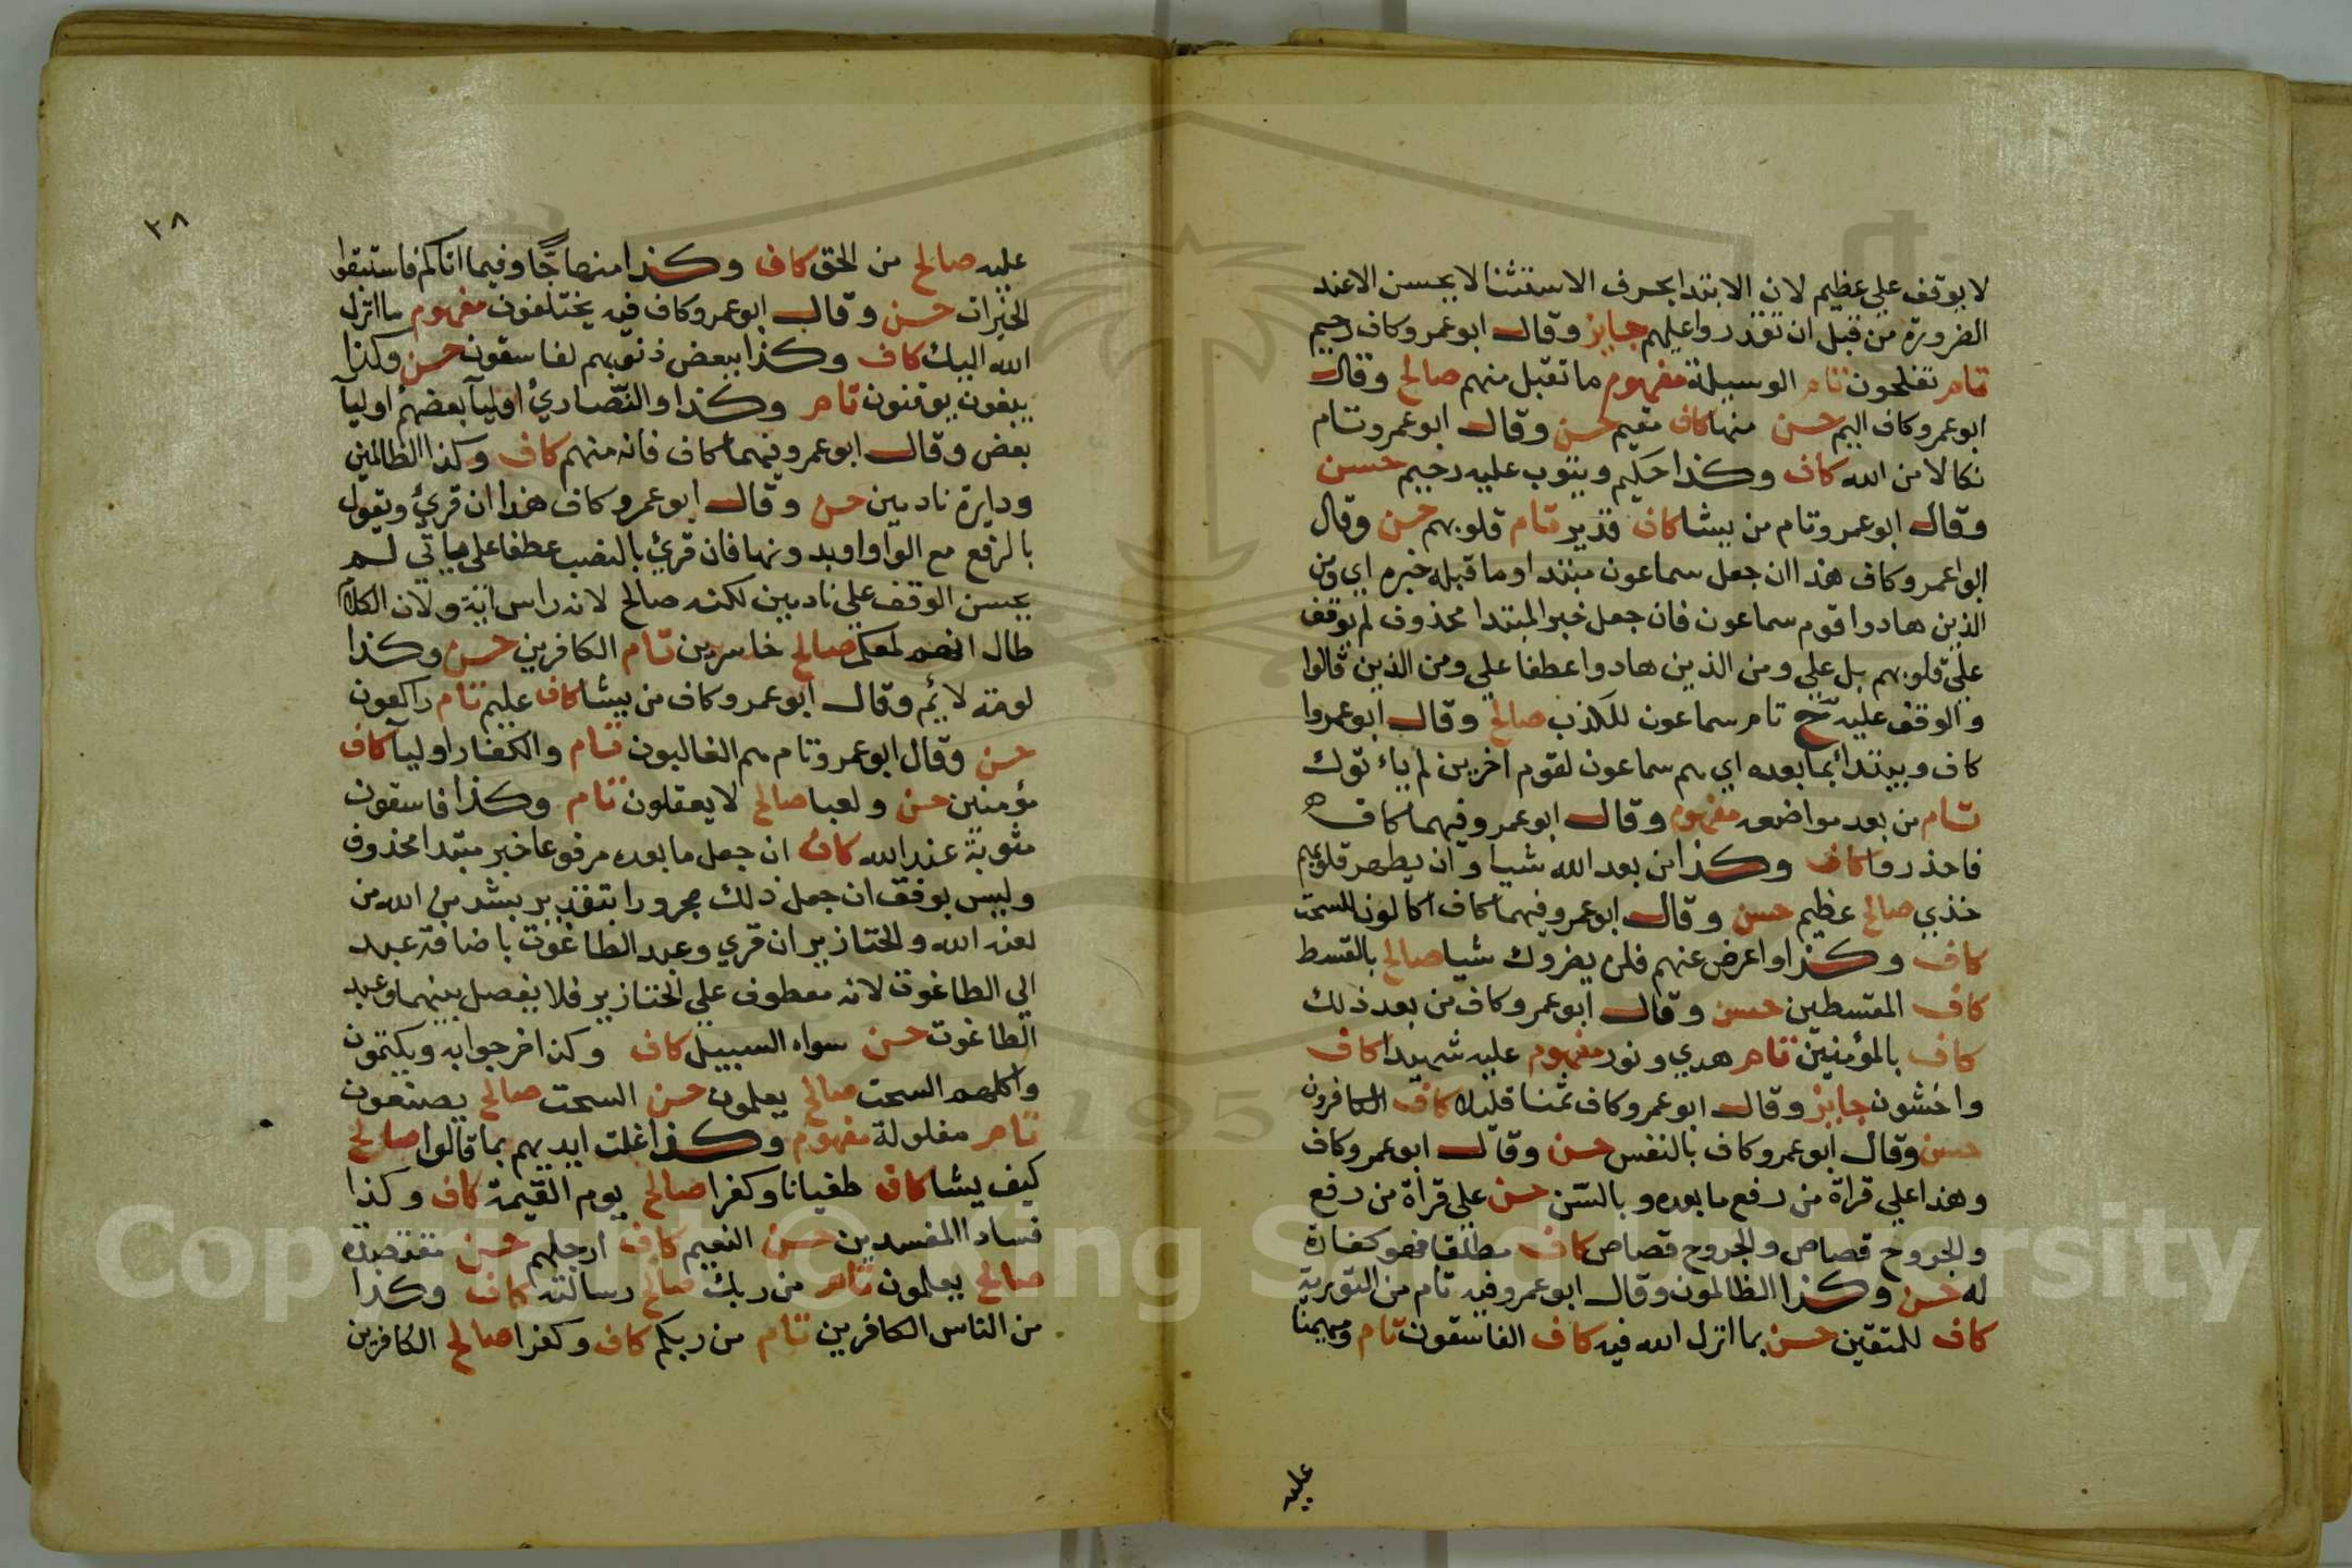 لا يوقف علي عظيم لان الابتدا بحرف الاستثنا لا يحسن الا عند
الضرورة من قبل ان تقدروا عليهم جايز وقال ابو عمرو كاف رحيم
تام تفلحون تام الوسيلة مفهوم ما تقبل منهم صالح وقال
ابو عمرو كاف اليم حسن منها كاف مقيم حسن وقال ابو عمرو تام
نكالا من الله كاف وكذا حكيم ويتوب عليه رحيم حسن
وقال ابو عمرو تام من يشا كاف قدير تام قلوبهم حسن وقال
ابوا عمرو كاف هذا ان جعل سماعون مبتدا وما قبله خبره اي ومن
الذين هادوا قوم سماعون فان جعل خبر المبتدا محذوف لم يوقف
علي قلوبهم بل علي ومن الذين هادوا عطفا علي ومن الذين قالوا
والوقف عليه ح تام سماعون للكذب صالح وقال ابو عمروا
كاف ويبتدا بما بعده اي هم سماعون لقوم اخرين لم ياتوك
تام من بعد مواضعه مفهوم وقال ابو عمرو فيهما كاف ه
فاحذروا كاف وكذا من بعد الله شيا وان يطهر قلوبهم
خذي صالح عظيم حسن وقال ابو عمرو فيهما كاف اكالون للسحت
كاف وكذا واعرض عنهم فلن يضروك شيا صالح بالقسط
كاف المقسطين حسن وقال ابو عمرو كاف من بعد ذلك
كاف بالمؤمنين تام هدي ونور مفهوم عليه شهيدا كاف
واخشون جايز وقال ابو عمرو كاف ثمنا قليلا كاف الكافرون
حسن وقال ابو عمرو كاف بالنفس حسن وقال ابو عمرو كاف
وهذا علي قراة من رفع ما بعده وبالسن حسن علي قراة من رفع
والجروح قصاص والجروح قصاص كاف مطلقا فهو كفارة
له حسن وكذا الظالمون وقال ابو عمرو فيه تام من التورية
كاف للمتقين حسن بما انزل الله فيه كاف الفاسقون تام ومهيمنا
عليه
٣٨
عليه صالح من الحق كاف وكذا منهاجًا وفيما اتاكم فاستبقوا
الخيرات حسن وقال ابو عمرو كاف فيه يختلفون مفهوم ما انزل
الله اليك كاف وكذا ببعض ذنوبهم لفاسقون حسن وكذا
يبغون يوقنون تام وكذا والنصاري اوليآ بعضهم اوليآ
بعض وقال ابو عمرو فيهما كاف فانه منهم كاف وكذا الظالمين
ودايرة نادمين حسن وقال ابو عمرو كاف هذا ان قرئ ويقول
بالرفع مع الواو او بدونها فان قرئ بالنصب عطفا علي ياتي لم
يحسن الوقف علي نادمين لكنه صالح لانه راس اية ولان الكلام
طال انهم لمعكم صالح خاسرين تام الكافرين حسن وكذا
لومة لائم وقال ابو عمرو كاف من يشا كاف عليم تام راكعون
حسن وقال ابو عمرو تام هم الغالبون تام والكفار اوليآ كاف
مؤمنين حسن ولعبا صالح لا يعقلون تام وكذا فاسقون
مثوبة عند الله كاف ان جعل ما بعده مرفوعا خبر مبتدا محذوف
وليس بوقف ان جعل ذلك مجرورا بتقدير بشر من الله من
لعنه الله والخنازير ان قري وعبد الطاغوت باضافة عبد
الي الطاغوت لانه معطوف علي الخنازير فلا يفصل بينهما وعبد
الطاغوت حسن سواء السبيل كاف وكذا خرجوا به ويكتمون
واكلهم السحت صالح يعلمون حسن السحت صالح يصنعون
تام مغلولة مفهوم وكذا غلت ايديهم بما قالوا صالح
كيف يشا كاف طغيانا وكفرا صالح يوم القيمة كاف وكذا
فسادا المفسدين حسن النعيم كاف ارجلهم حسن مقتصدة
صالح يعلمون تام من ربك صالح رسالته كاف وكذا
من الناس الكافرين تام من ربكم كاف وكفرا صالح الكافرين
Copyright © King Saud University
195